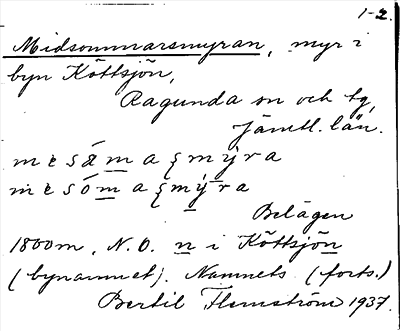 1-2.
Midsommarsmyran, myr i
byn Köttsjön,
Ragunda sn och tg,
Jämtl. län.
Belägen
1800m. N.O. n i Köttsjön
(bynamnet). Namnets (forts.)
Bertil Flemström 1937.